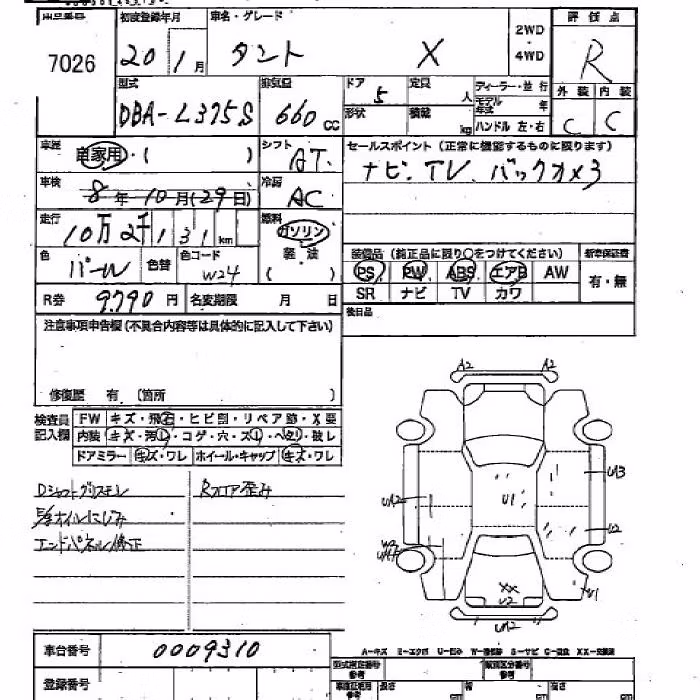 出品番号 初度登録年月 車名・グレード 2WD・4WD 評価点
7026 20年1月 タント X R
型式 排気量 ドア 定員 ディーラー・並行 外装 内装
DBA-L375S 660cc 5 人 モデル年式 年 C C
形状 積載 kg ハンドル 左・右
車歴 自家用・( ) シフト AT セールスポイント (正常に機能するものに限ります)
車検 8年10月(29日) 冷房 AC ナビ、TV、バックカメラ
走行 10万2千131km 燃料 ガソリン
軽油 ( )
色 パール 色替 色コード W24
装備品 (純正品に限り○をつけてください) 新車保証書
PS PW ABS エアB AW 有・無
SR ナビ TV カワ
R券 9,790円 名変期限 月 日
後日品
注意事項申告欄(不具合内容等は具体的に記入して下さい)
修復歴 有 (箇所 )
検査員記入欄 FW キズ・飛石・ヒビ割・リペア跡・X要
内装 キズ・汚レ・コゲ・穴・スレ・ヘタリ・破レ
ドアミラー キズ・ワレ ホイール・キャップ キズ・ワレ
Dシャフトグリスモレ
E/gオイルにじみ
エンドパネル修正
Rフロア歪み
A2 A2
UA3
U1
UA2
U2
W2
XX
U2
U1
UA2
車台番号 0009310
A-キズ E-エクボ U-凹み W-補修跡 S-サビ C-腐食 XX-交換済
登録番号
型式指定番号 参考
類別区分番号 参考
長さ cm 幅 cm 高さ cm